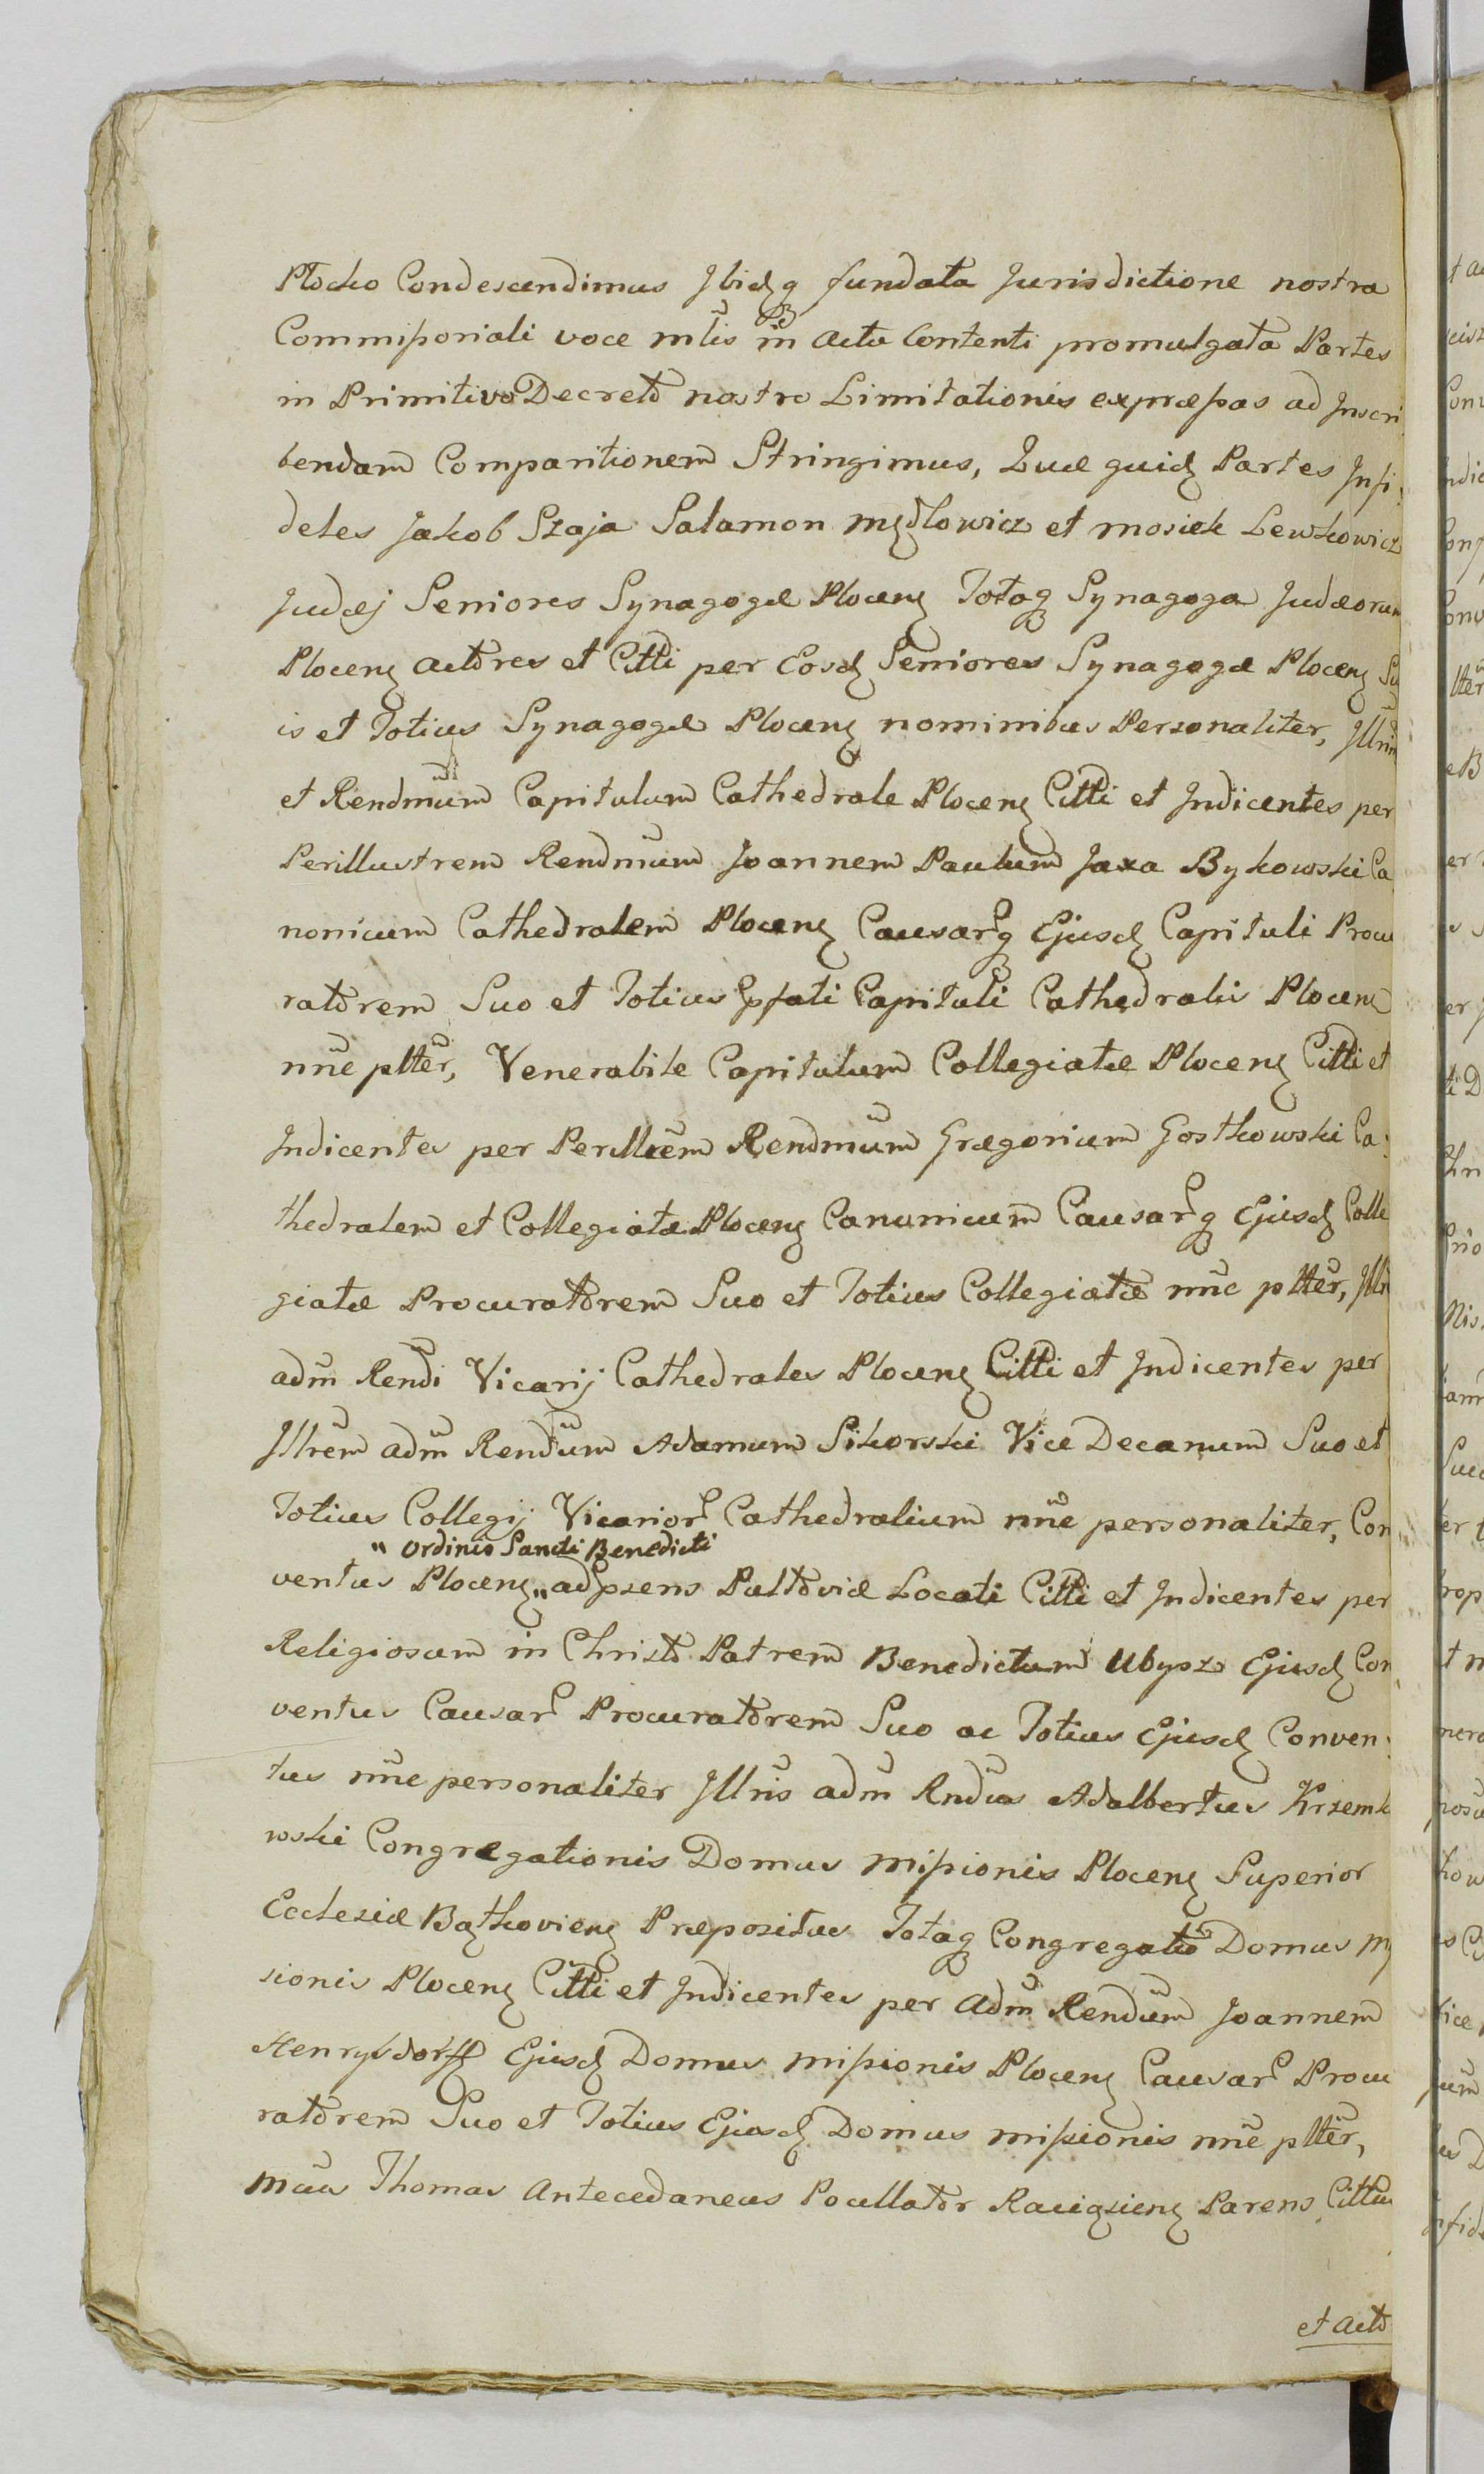 Płocko Condescendimus Ibidq fundata Jurisdictione nostra
Commissoriali voce mltis in actu Contenti promulgata Partes
in Primitivo Decreto nostro Limitationis expressas ad Inscri
bendam Comparitionem Stringimus, Quæ quid Partes Infi:
deles Jakob Szaja Salamon Mędlowicz et Mosiek Lewkowicz
Judæj Seniores Synagogæ Plocen Totaq Synagoga Judæorum
Plocen actores et Citti per Eosd Seniores Synagogæ Plocen Su
is et Totius Synagogæ Plocen nominibus Personaliter, Illrm
et Rendmum Capitulum Cathedrale Plocen Citti et Indicentes per
Perillustrem Rendmum Joannem Paulum Jaxa Bykowski Ca
nonicum Cathedralem Plocen Causarq Ejusd Capituli Procu
ratorem Suo et Totius pfati Capituli Cathedralis Plocen
nne plter, Venerabile Capitulum Collegiatæ Plocen Citti et
Indicentes per Perillrem Rendmum Grægorium Gostkowski Ca:
thedralem et Collegiatæ Plocen Canonicum Causarq Ejusd Colle
giatæ Procuratorem Suo et Totius Collegiatæ nne plter, Illr
adm Rendi Vicarij Cathedrales Plocen Citti et Indicentes per
Illrem adm Rendum Adamum Sikorski Vice Decanum Suo et
Totius Collegij Vicarior Cathedralium nne personaliter, Con
" Ordinis Sancti Benedicti
ventus Plocen " ad psens Pultoviæ Locati Citti et Indicentes per
Religiosum in Christo Patrem Benedictum Ubysz Ejusd Con
ventus Causar Procuratorem Suo ac Totius Ejusd Conven:
tus nne personaliter Illris adm Rndus Adalbertus Krzemk
wski Congregationis Domus Missionis Plocen Superior
Ecclesiæ Bątkovien Præpositus Totaq Congregatio Domus My
sionis Plocen Citti et Indicentes per Adm Rendum Joannem
Henrysdorff Ejusd Domus Missionis Plocen Causar Procu
ratorem Suo et Totius Ejusd Domus Missionis nne plter,
Mcus Thomas Antecedaneus Pocillator Raciązien Parens Cittus
et acto